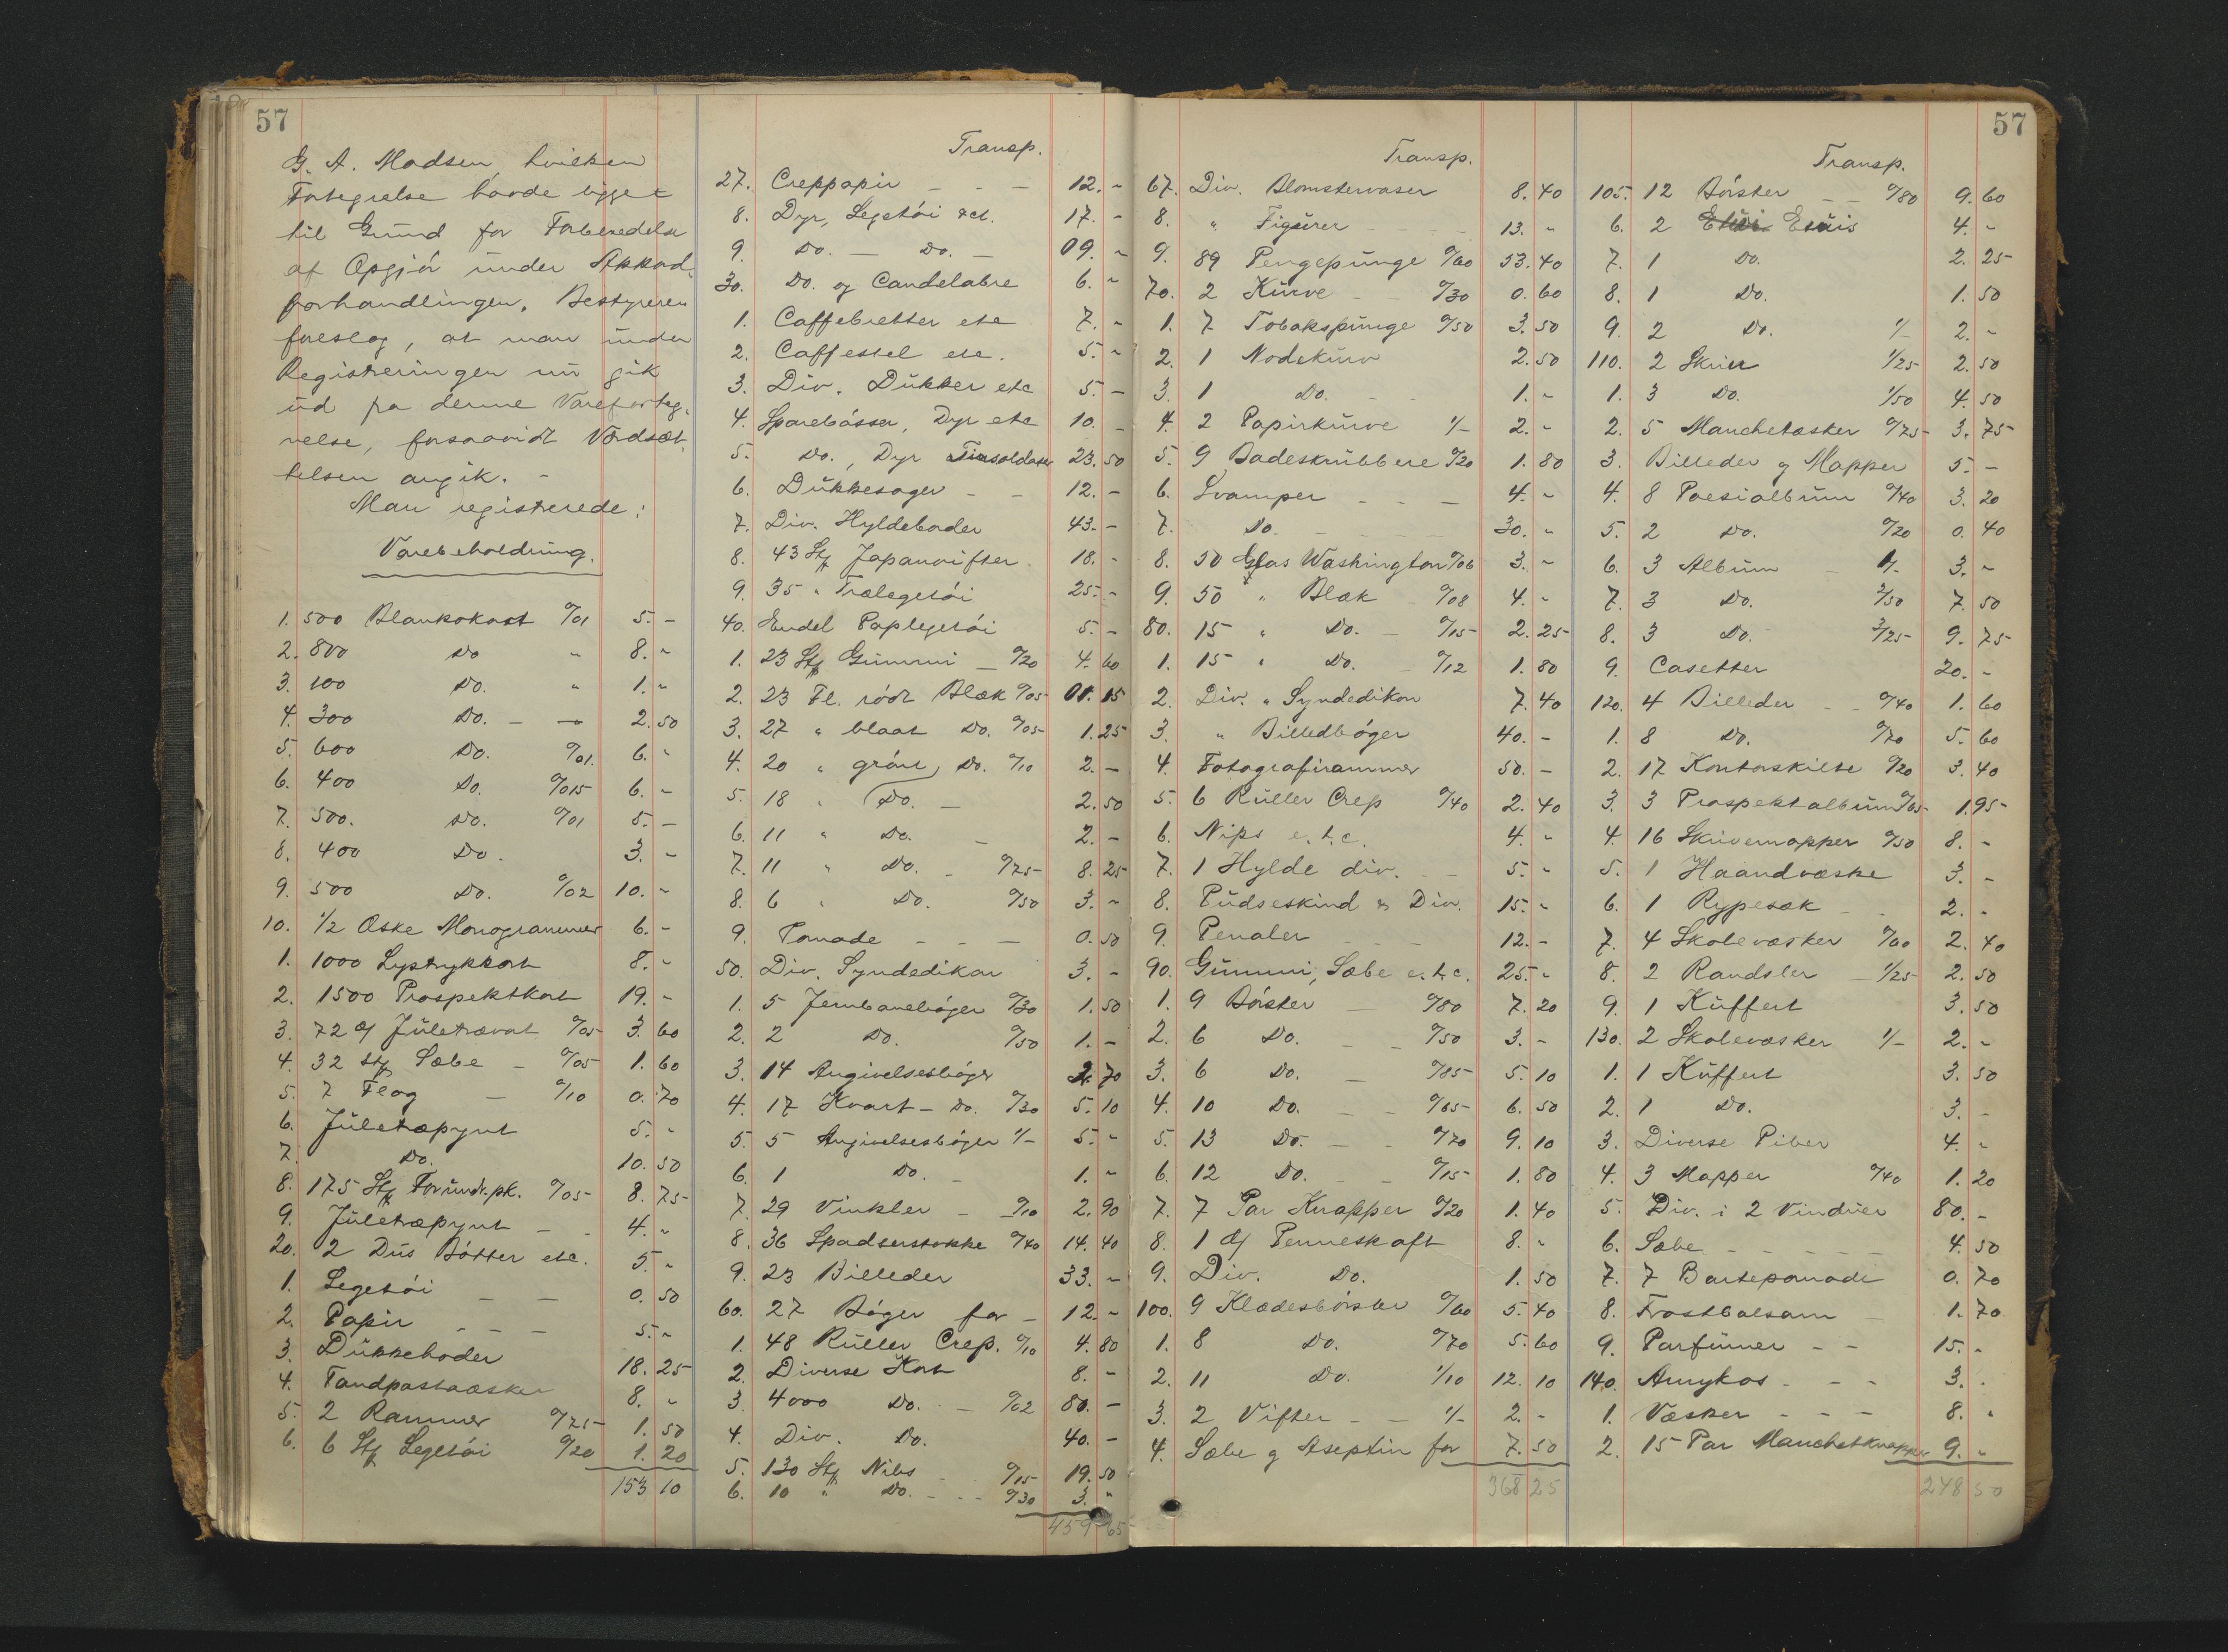 57
G. A. Madsen, hvilken
Fortegnelse havde ligget
til Grund for Forberedelse
af Opgjör under Akkord-
forhandlingen. Bestyreren
foreslog, at man under
Registreringen nu gik
ud fra denne Varefor­teg-
nelse, forsaavidt Værdsæt-
telsen angik. -
Man registrerede:
Varebeholdning.
1. 500 Blankokort %01 5. -
2. 800 Do " 8. "
3. 100 Do. " 1. "
4. 300 Do. - - 2. 50
5. 600 Do. %01. 6. "
6. 400 Do. %015 6. "
7. 500. Do. %01 5. -
8. 400 Do. 3. -
9. 500 Do. %02 10. "
10. 1/2 Æske Monogrammer 6. -
1. 1000 Lystrykkort 8. "
2. 1500 Prospektkort 19. -
3. 72 Juletrævat %05 3. 60
4. 32 Stk Sæbe - %05 1. 60
5. 7 Flag - %10 0. 70
6. Juletræpynt 5. "
7. Do. 10. 50
8. 175 Stk Forundr.pk. %05 8. 75
9. Juletræpynt - 4. "
20. 2 Dus Bötter etc. 5. "
1. Legetöi - - 0. 50
2. Papir - - - 5. "
3. Dukkehoder 18. 25
4. Tandpastaæsker 8. "
5. 2 Rammer %75 1. 50
6. 6 Stk Legetöi %20 1. 20
153 10
Transp.
27. Creppapir - - - 12. "
8. Dyr, Legetöi 17. -
9. Do. - Do. - 09. "
30. Do. og Candelabre 6. "
1. Caffebretter etc 7. "
2. Caffestel etc. 5. "
3. Div. Dukker etc 5. -
4. Sparebösser, Dyr etc 10. -
5. Do., Dyr Tinsoldater 23. 50
6. Dukkesager - - 12. -
7. Div. Hyldeborder 43. -
8. 43 Stk Japanvifter 18. -
9. 35 " Trælegetöi 25. "
40. Endel Paplegetöi 5. -
1. 23 Stk Gummi - %20 4. 60
2. 23 Fl. rödt Blæk %05 01. 15
3. 27 " blaat Do. %05 1. 25
4. 20 " grönt, Do. %10 2. -
5. 18 " Do. - 2. 50
6. 11 " Do. - 2. -
7. 11 " Do. - %75 8. 25
8. 6 " Do. %50 3. "
9. Pomade - - - 0. 50
50. Div. Syndedikon 3. -
1. 5 Jernbanebøger %30 1. 50
2. 2 Do. %50 1. -
3. 14 Angivelsesbøger 2. 70
4. 17 Kvart - Do. %30 5. 10
5. 5 Angivelsesbøger 1/- 5. "
6. 1 Do. - 1. "
7. 29 Vinkler - %10 2. 90
8. 36 Spadserstokke %40 14. 40
9. 23 Billeder 33. "
60. 27 Bøger for - 12. "
1. 48 Ruller Crep. %10 4. 80
2. Diverse Kort 8. -
3. 4000 Do. - %02 80. -
4. Div. Do. 40. -
5. 130 Stk Nibs - %15 19. 50
6. 10 " Do. - - %30 3. "
459 65
57
Transp.
67. Div. Blomstervaser 8. 40
8. " Figurer - - - 13. "
9. 89 Pengepunge %60 53. 40
70. 2 Kurve - - %30 0. 60
1. 7 Tobakspunge %50 3. 50
2. 1 Nodekurv 2. 50
3. 1 Do. - 1. "
4. 2 Papirkurve 1/- 2. "
5. 9 Badeskrubbere %20 1. 80
6. Svamper - - - 4. "
7. Do. - - - 30. "
8. 50 Glas Washington %06 3. "
9. 50 " Blæk - %08 4. "
80. 15 " Do. - %15 2. 25
1. 15 " Do. - %12 1. 80
2. Div. " Syndedikon 7. 40
3. " Billedbøger 40. -
4. Fotografirammer 50. -
5. 6 Ruller Crep %40 2. 40
6. Nips e.t.c. 4. "
7. 1 Hylde div. - - 5. "
8. Pudseskind & Div. 15. "
9. Penaler - - - 12. -
90. Gummi, Sæbe e.t.c. 25. "
1. 9 Börster - %80 7. 20
2. 6 Do. - - %50 3. -
3. 6 Do. - %85 5. 10
4. 10 Do. - - %65 6. 50
5. 13 Do. - - %70 9. 10
6. 12 Do. - - %15 1. 80
7. 7 Par Knapper %20 1. 40
8. 1 Penneskaft 8. "
9. Div. Do. 1. 50
100. 9 Klædesbörster %60 5. 40
1. 8 Do. %70 5. 60
2. 11 Do. 1/10 12. 10
3. 2 Vifter - - 1/- 2. -
4. Sæbe og Aseptin for 7. 50
368 25
Transp.
105. 12 Börster - - %80 9. 60
6. 2 Etuis 4. -
7. 1 Do. 2. 25
8. 1 Do. 1. 50
9. 2 Do. 1/- 2. -
110. 2 Skrin 1/25 2. 50
1. 3 Do. 1/50 4. 50
2. 5 Manchetæsker %75 3. 75
3. Billeder og Mapper 5. -
4. 8 Poesialbum %40 3. 20
5. 2 Do. %20 0. 40
6. 3 Album - 1/- 3. "
7. 3 Do. 2/50 7. 50
8. 3 Do. 3/25 9. 75
9. Casetter 20. -
120. 4 Billeder - - %40 1. 60
1. 8 Do. %70 5. 60
2. 17 Kontorskilte %20 3. 40
3. 3 Prospektalbum %65 1. 95
4. 16 Skrivemapper %50 8. -
5. 1 Haandvæske 3. -
6. 1 Rypesæk - - 2. -
7. 4 Skolevæsker %60 2. 40
8. 2 Randsler - 1/25 2. 50
9. 1 Kuffert 3. 50
130. 2 Skolevæsker 1/- 2. "
1. 1 Kuffert 3. 50
2. 1 Do. 3. -
3. Diverse Piber 4. "
4. 3 Mapper %40 1. 20
5. Div. i 2 Vinduer 80. -
6. Sæbe - - - - 4. 50
7. 7 Bartepomade 0. 70
8. Frostbalsam - 1. 70
9. Parfumer - - 15. -
140. Amykos - - - 3. .
1. Væsker - - - 8. "
2. 15 Par Manchetknapper 9. "
248 50